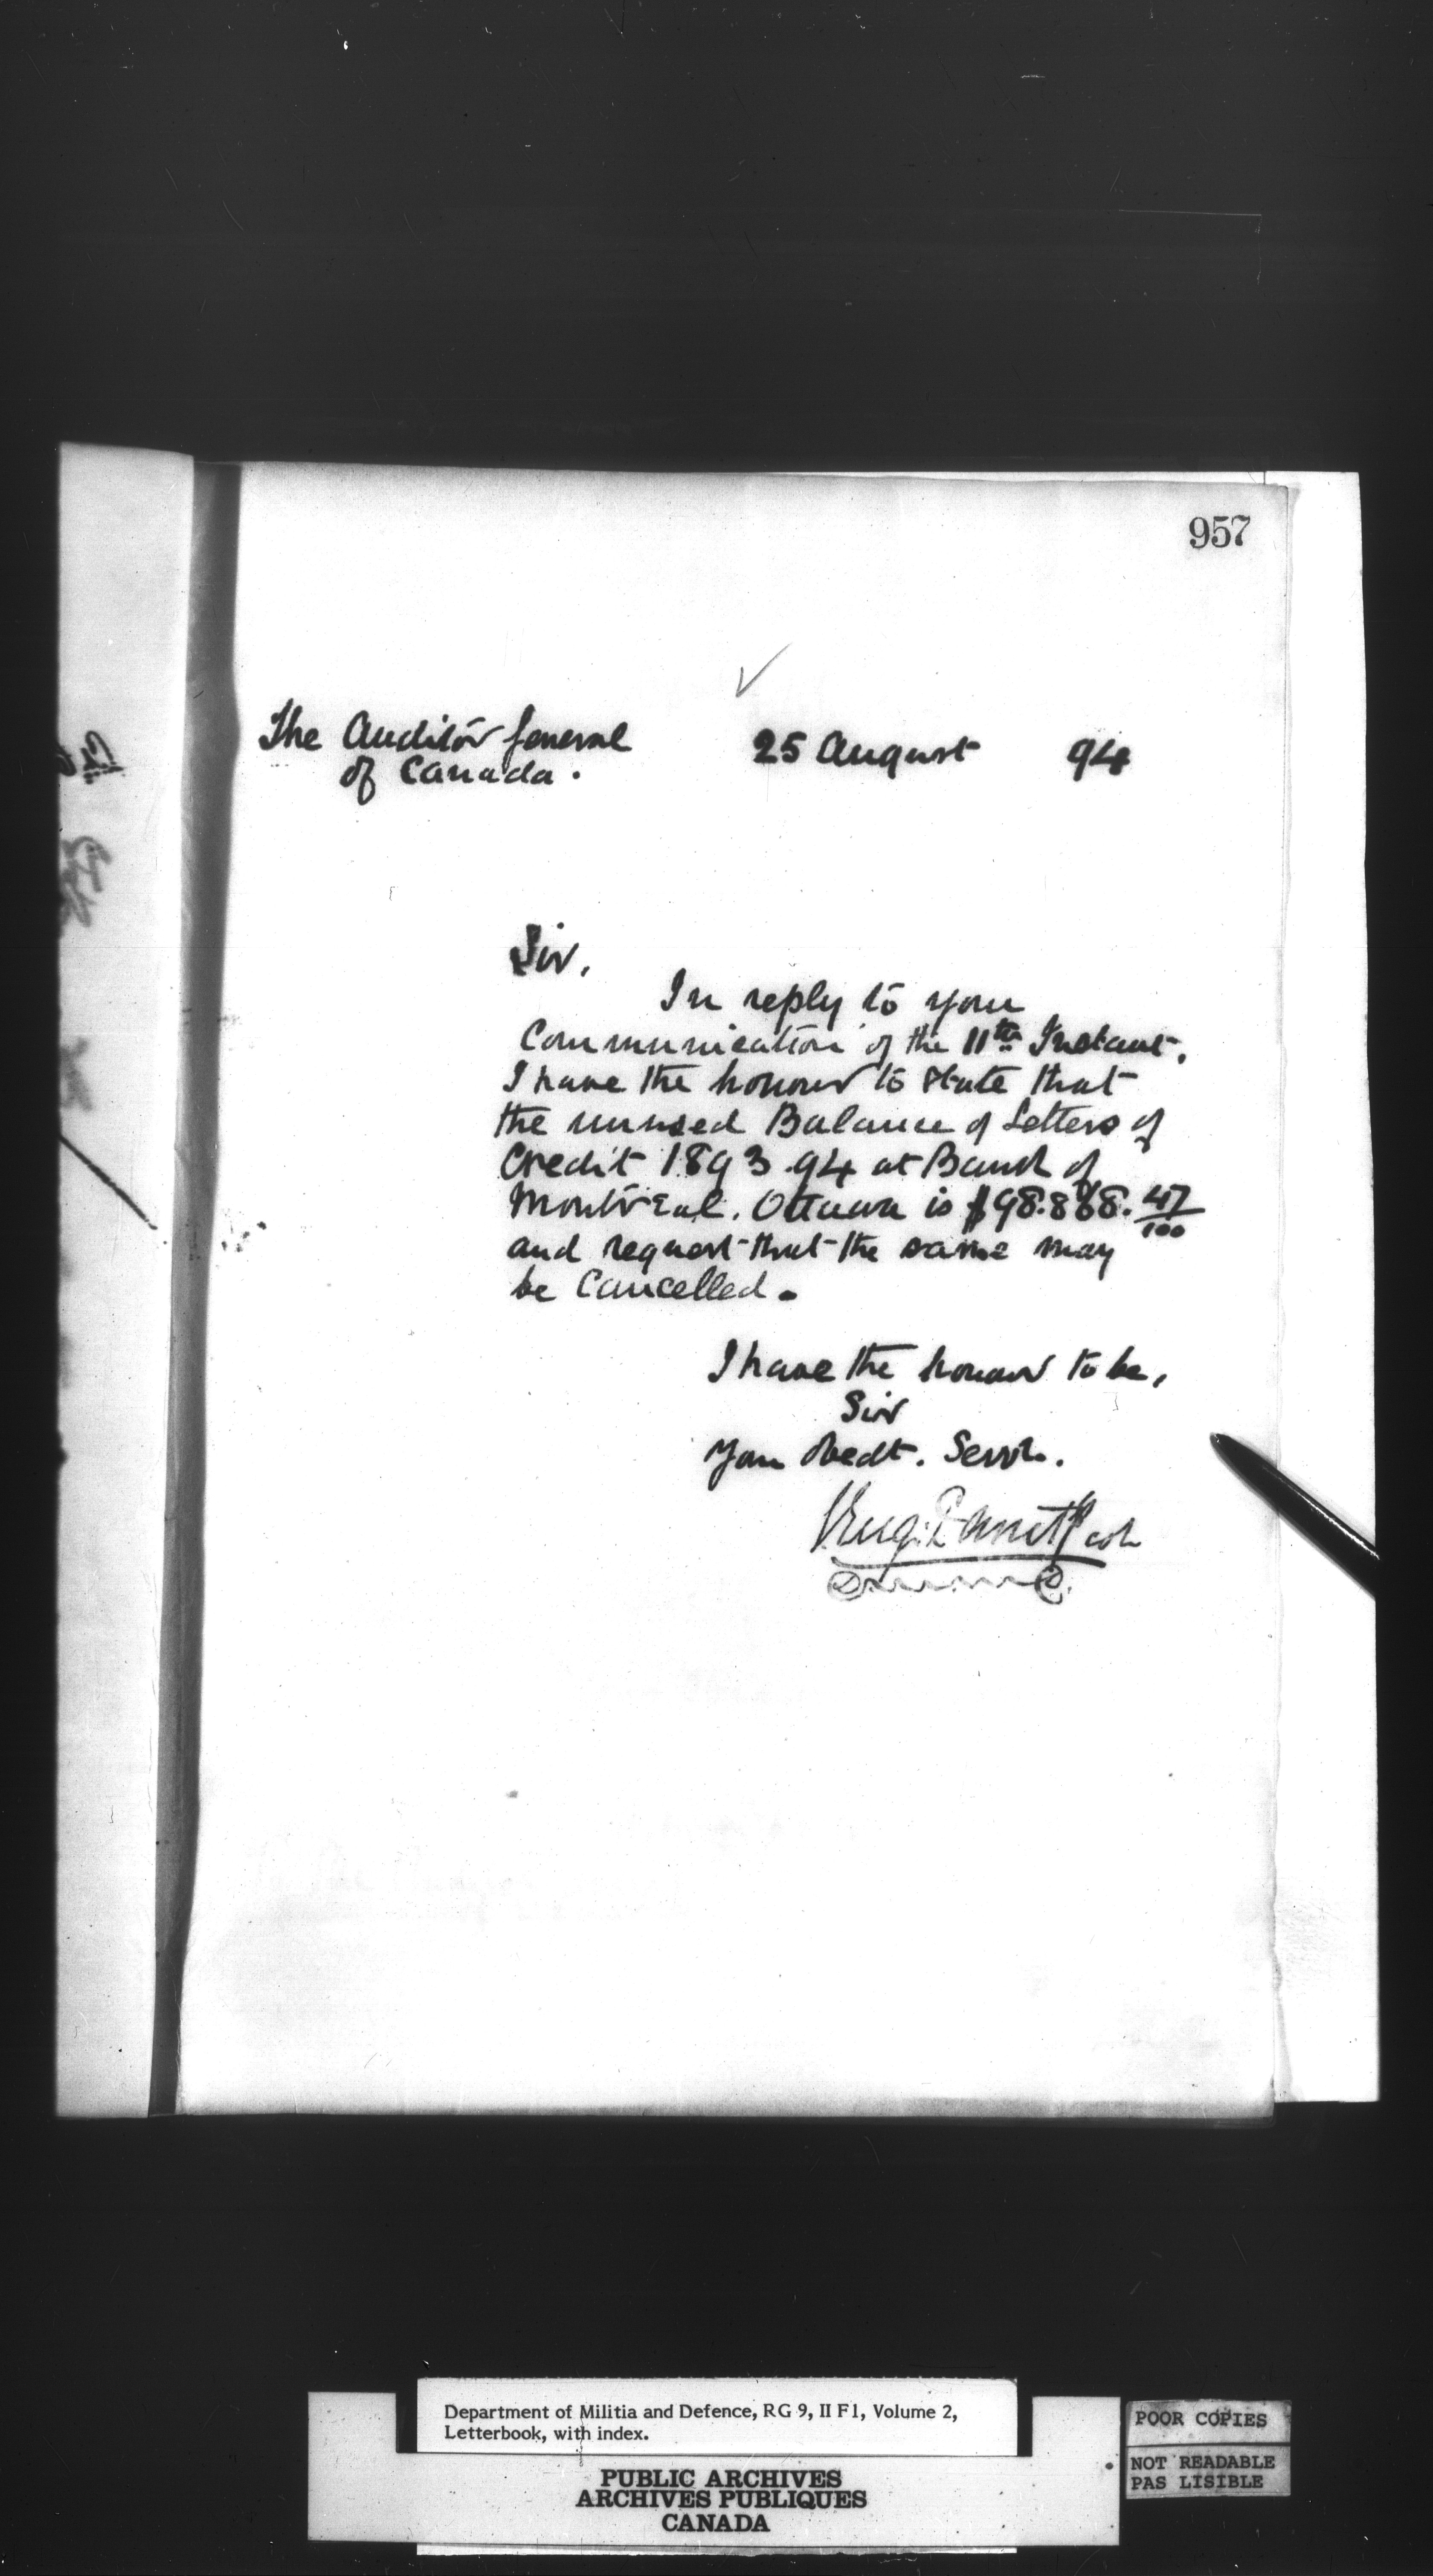 957
The Auditor General
of Canada.
25 August 94
Sir,
In reply to your
Communication of the 11th Instant,
I have the honour to state that
the unused Balance of Letters of
Credit 1893.94 at Bank of
Montreal. Ottawa is $98.888.47/100
and request that the same may
be Cancelled.
I have the honour to be,
Sir
Your Obedt. Servt.
Panet Col
Department of Militia and Defence, RG 9, II F1, Volume 2,
Letterbook, with index.
PUBLIC ARCHIVES
ARCHIVES PUBLIQUES
CANADA
POOR COPIES
NOT READABLE
PAS LISIBLE